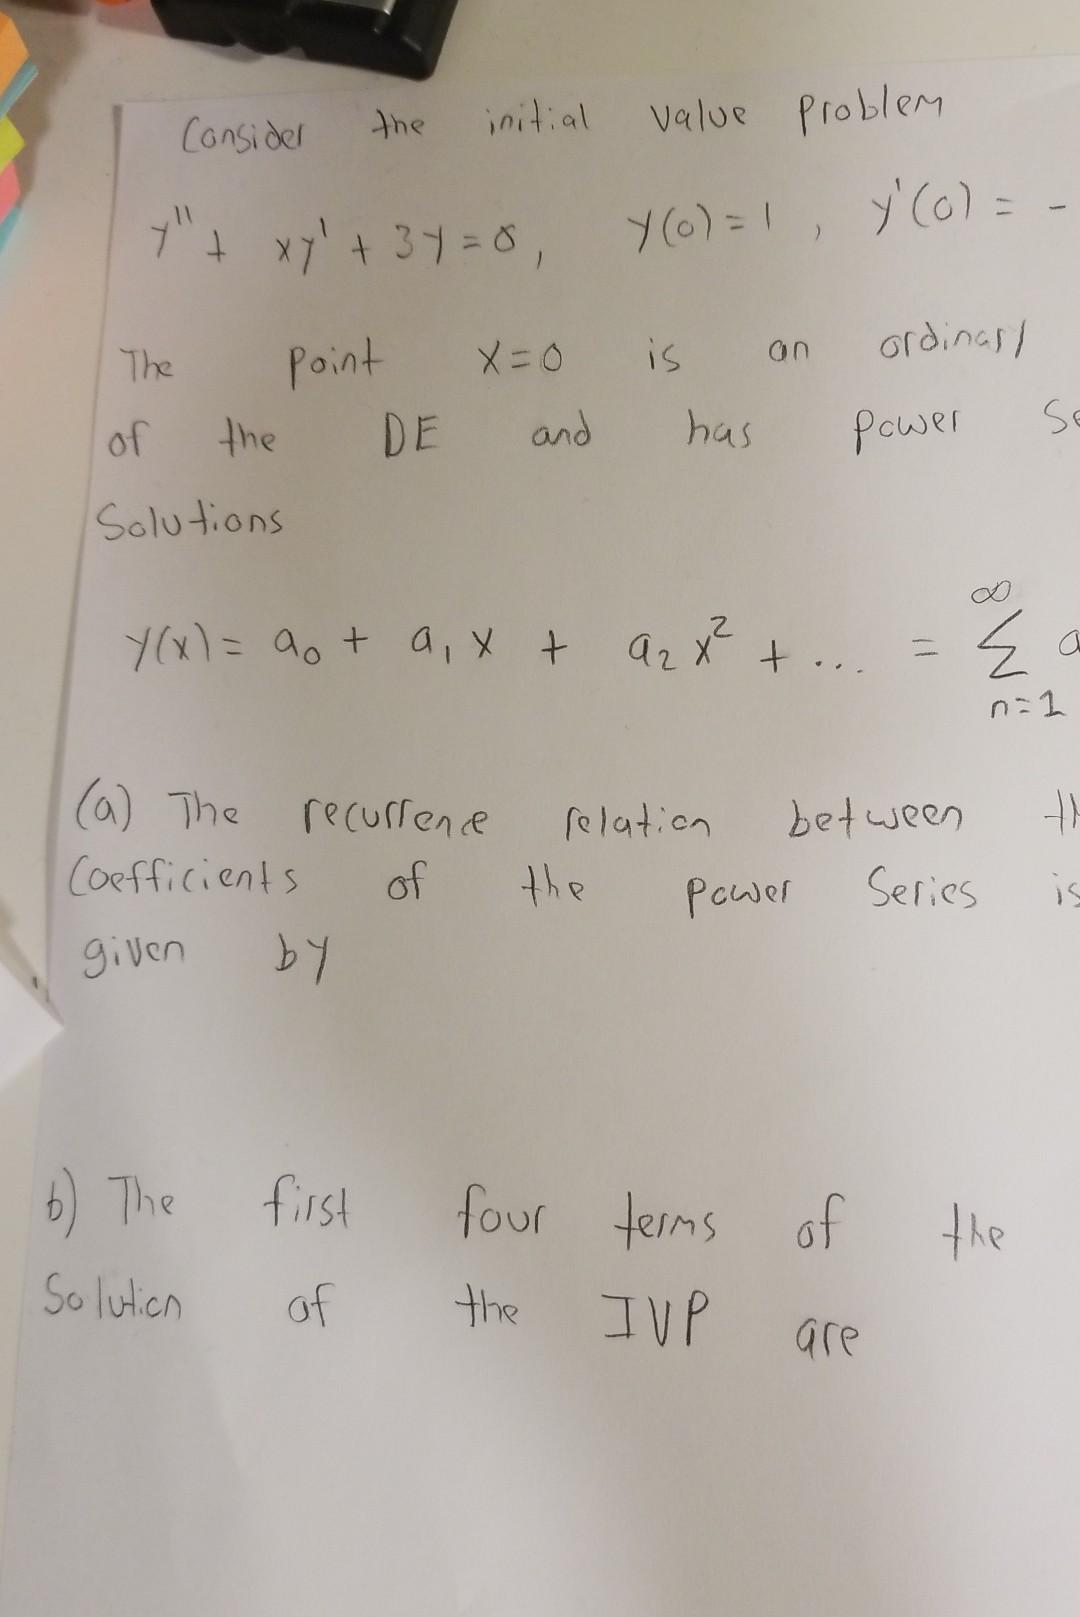 Consider the initial value problem
y'' + xy' + 3y = 0, y(0) = 1, y'(0) = -
The point x=0 is an ordinary
of the DE and has power se
Solutions
y(x) = a₀ + a₁ x + a₂ x² + ... = ∞ ∑ n=1 a
(a) The recurrence relation between th
Coefficients of the power Series is
given by
b) The first four terms of the
Solution of the IVP are